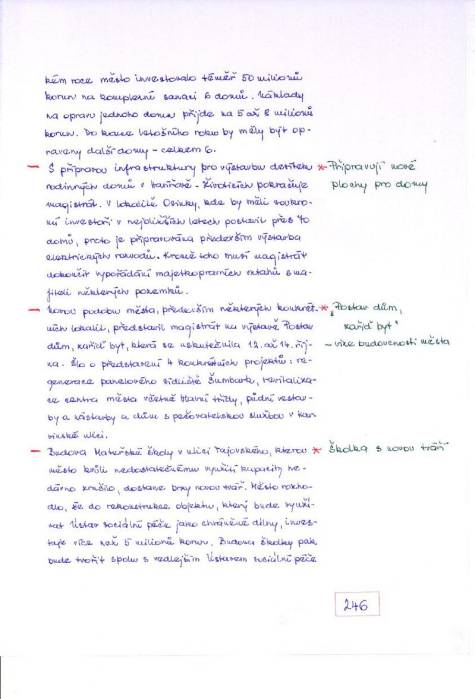 kém roce město investovalo téměř 50 milionů
korun na komplexní sanaci 6 domů. Náklady
na opravu jednoho domu přijde na 5 až 8 milionů
korun. Do konce letošního roku by měly být op-
raveny další domy - celkem 6.
- S přípravou infrastruktury pro výstavbu desítek * Připravují nové
rodinných domů v Havířově - Životicích pokračuje plochy pro domy
magistrát. V lokalitě Osinky, kde by měli soukro-
mí investoři v nejbližších letech postavit přes 40
domů, proto je připravována především výstavba
elektrických rozvodů. Kromě toho musí magistrát
dokončit vypořádání majetkoprávních vztahů s ma-
jiteli některých pozemků.
- Novou podobu města, především některých konkrét- * "Postav dům,
ních lokalit, představil magistrát na výstavě Postav zařiď byt"
dům, zařiď byt, která se uskutečnila 12. až 14. říj- - vize budoucnosti města
na. Šlo o představení 4 konkrétních projektů: re-
generace panelového sídliště Šumbark, revitaliza-
ce centra města včetně Hlavní třídy, půdní vestav-
by a výstavby a dům s pečovatelskou službou v Kar-
vinské ulici.
- Budova Mateřské školy v ulici Tajovského, kterou * Školka s novou tváří
město kvůli nedostatečnému využití kapacity ne-
dávno zrušilo, dostane brzy novou tvář. Město rozho-
dlo, že do rekonstrukce objektu, který bude využí-
vat Ústav sociální péče jako chráněné dílny, inves-
tuje více než 5 milionů korun. Budova školky pak
bude tvořit spolu s vedlejším Ústavem sociální péče
246